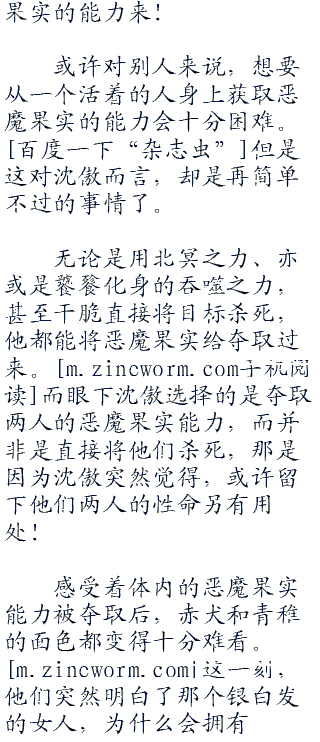 果实的能力来!
或许对别人来说，想要
从一个活着的人身上获取恶
魔果实的能力会十分困难。
[百度一下“杂志虫”]但是
这对沈傲而言，却是再简单
不过的事情了。
无论是用北冥之力、亦
或是饕餮化身的吞噬之力，
甚至干脆直接将目标杀死，
他都能将恶魔果实给夺取过
来。[m.zincworm.com手机阅
读]而眼下沈傲选择的是夺取
两人的恶魔果实能力，而并
非是直接将他们杀死，那是
因为沈傲突然觉得，或许留
下他们两人的性命另有用
处!
感受着体内的恶魔果实
能力被夺取后，赤犬和青稚
的面色都变得十分难看。
[m.zincworm.com|这一刻，
他们突然明白了那个银白发
的女人，为什么会拥有